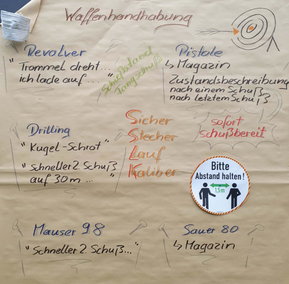 Waffenhandhabung
Revolver
"Trommel dreht...
ich lade auf ..."
Pistole
↳ Magazin
Zustandsbeschreibung
nach einem Schuß
nach letztem Schuß
Drilling
"Kugel-Schrot"
"schneller 2 Schuß
auf 30m..."
Sicher
Stecher
Lauf
Kaliber
sofort
schußbereit
Bitte
Abstand halten!
1,5m
Mauser 98
"Schneller 2 Schuß..."
Sauer 80
↳ Magazin